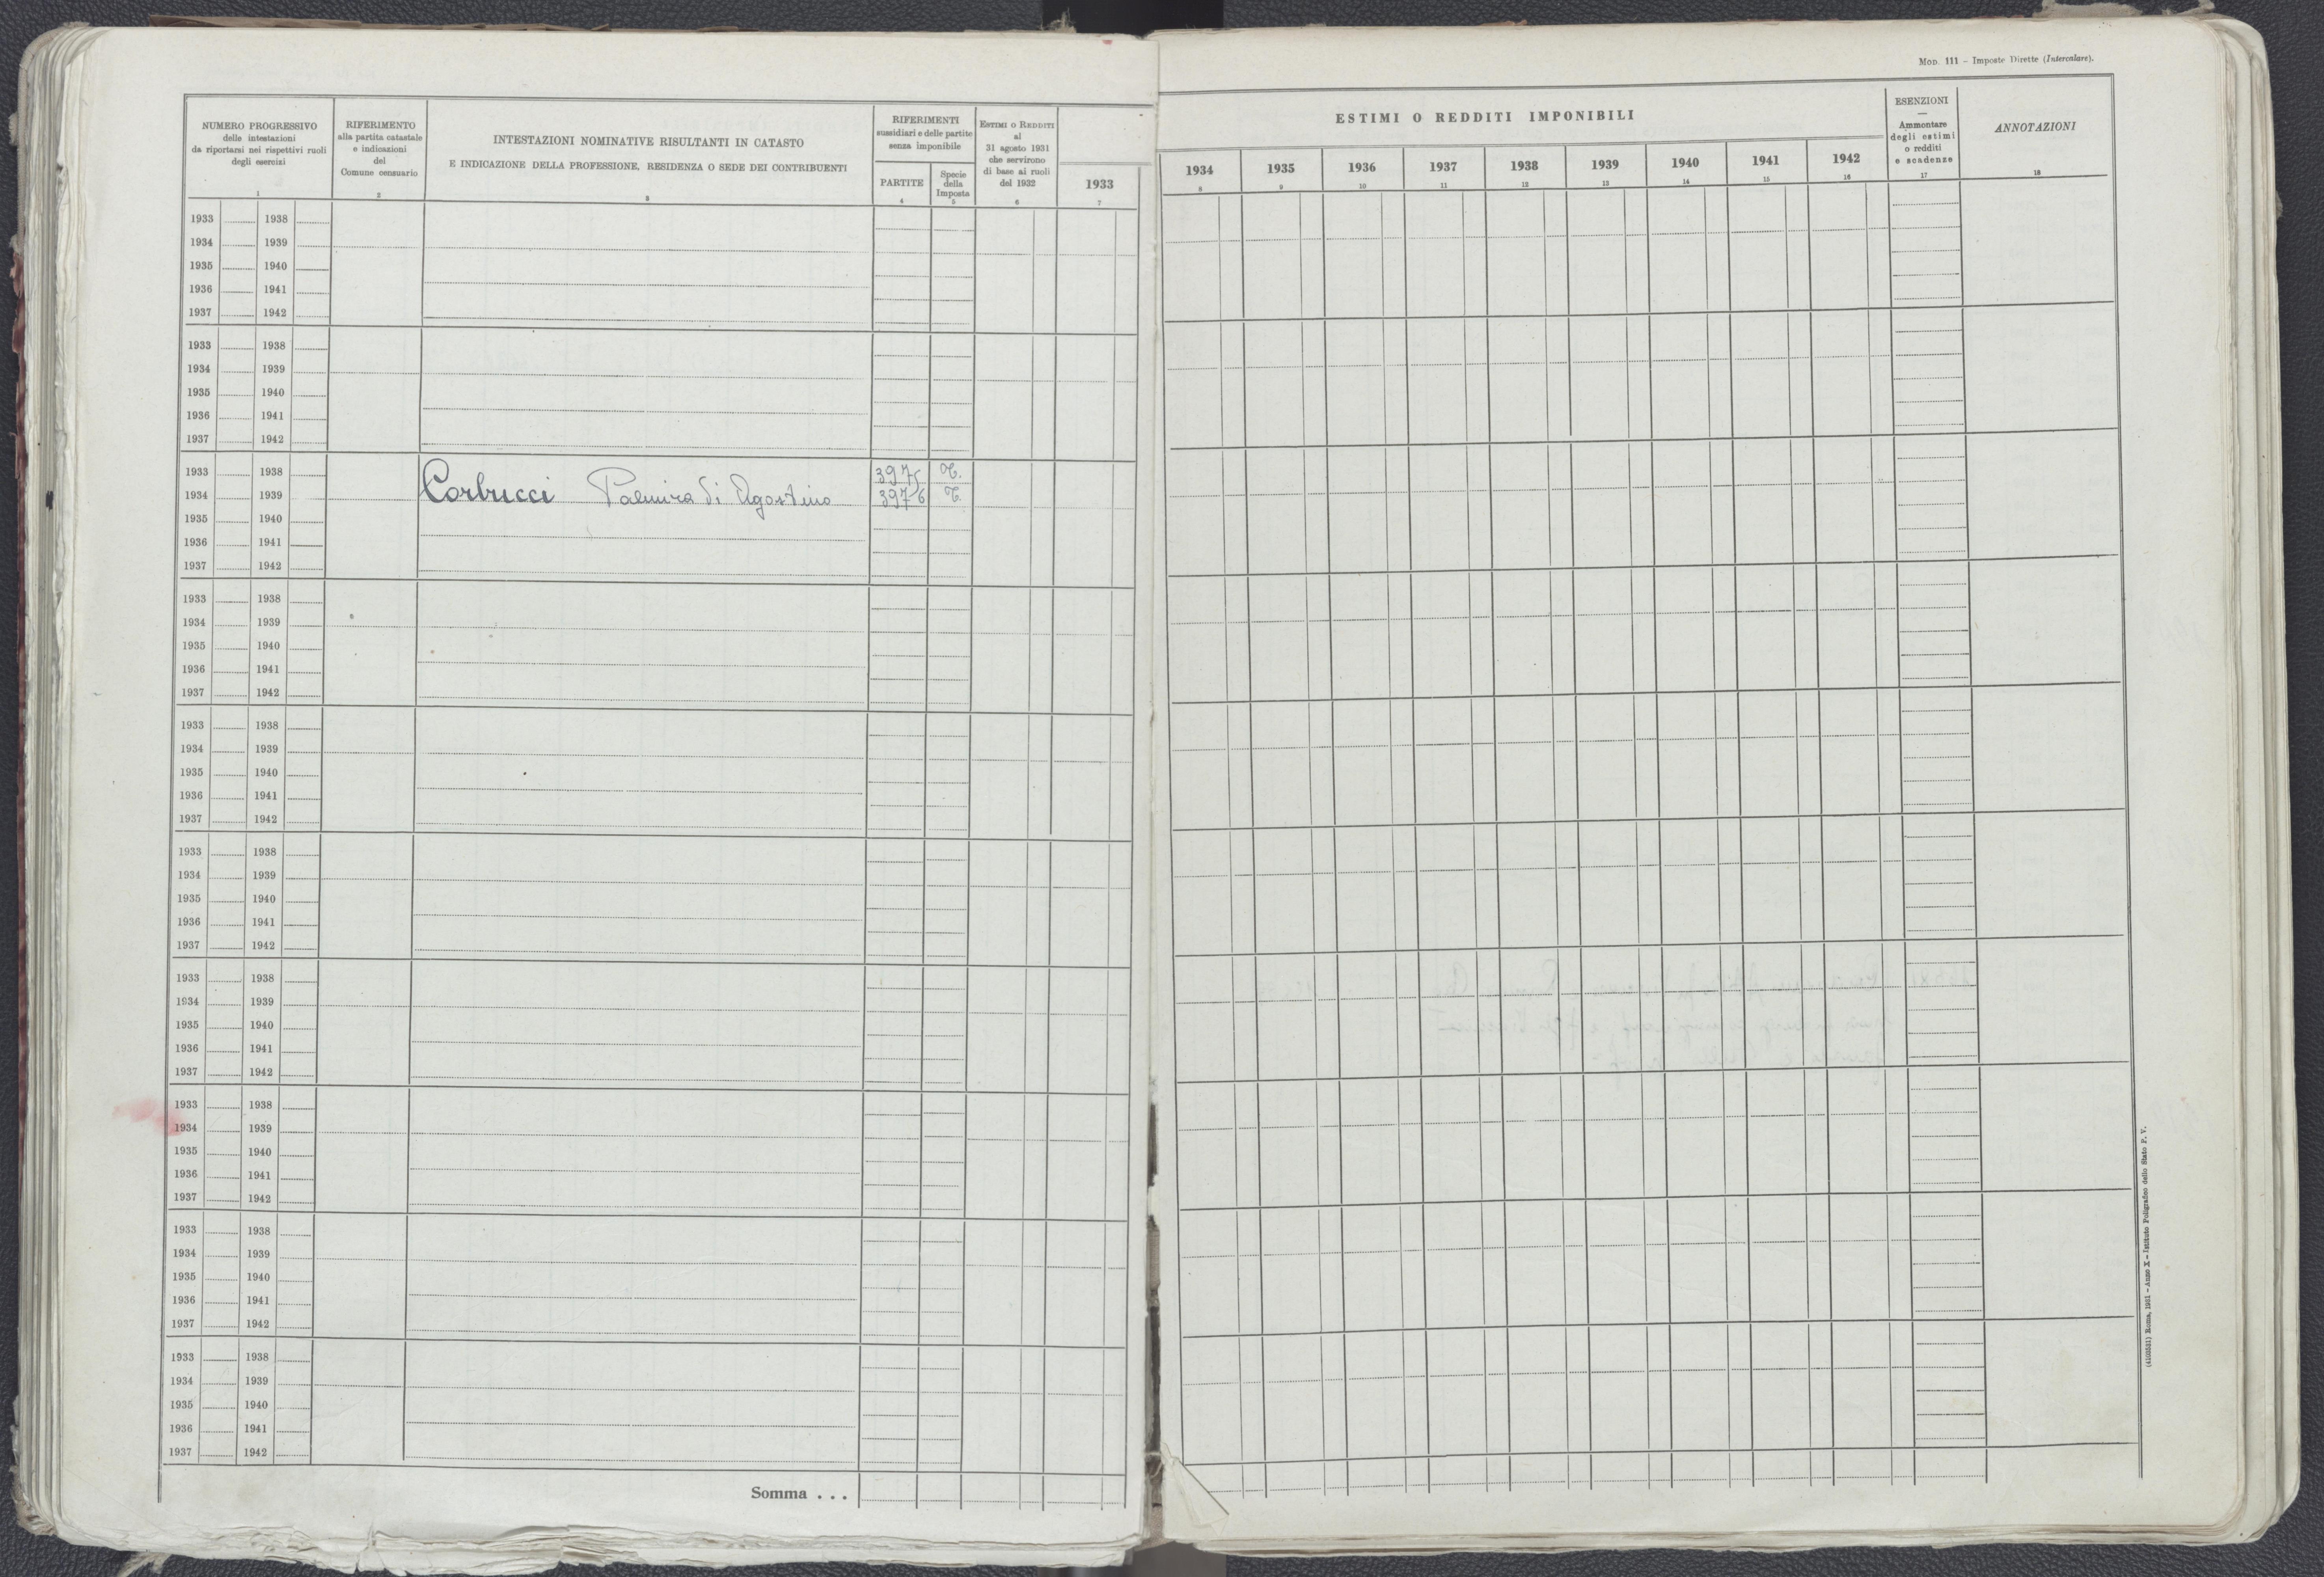 MOD. 111 – Imposte Dirette (Intercalare).
NUMERO PROGRESSIVO
delle intestazioni
da riportarsi nei rispettivi ruoli
degli esercizi
1
RIFERIMENTO
alla partita catastale
e indicazioni
del
Comune censuario
2
INTESTAZIONI NOMINATIVE RISULTANTI IN CATASTO
E INDICAZIONE DELLA PROFESSIONE, RESIDENZA O SEDE DEI CONTRIBUENTI
3
RIFERIMENTI
sussidiari e delle partite
senza imponibile
PARTITE
4
Specie
della
Imposta
5
ESTIMI O REDDITI
al
31 agosto 1931
che servirono
di base ai ruoli
del 1932
6
1933
7
ESTIMI O REDDITI IMPONIBILI
1934 1935 1936 1937 1938 1939 1940 1941 1942
8 9 10 11 12 13 14 15 16
ESENZIONI
—
Ammontare
degli estimi
o redditi
e scadenze
17
ANNOTAZIONI
18
1933 1938
1934 1939
1935 1940
1936 1941
1937 1942
1933 1938
1934 1939
1935 1940
1936 1941
1937 1942
1933 1938 3975 T.
1934 1939 Corbucci Palmira di Agostino 3976 T.
1935 1940
1936 1941
1937 1942
1933 1938
1934 1939
1935 1940
1936 1941
1937 1942
1933 1938
1934 1939
1935 1940
1936 1941
1937 1942
1933 1938
1934 1939
1935 1940
1936 1941
1937 1942
1933 1938
1934 1939
1935 1940
1936 1941
1937 1942
1933 1938
1934 1939
1935 1940
1936 1941
1937 1942
1933 1938
1934 1939
1935 1940
1936 1941
1937 1942
1933 1938
1934 1939
1935 1940
1936 1941
1937 1942
Somma . . .
(4103531) Roma, 1931 – Anno X – Istituto Poligrafico dello Stato P. V.